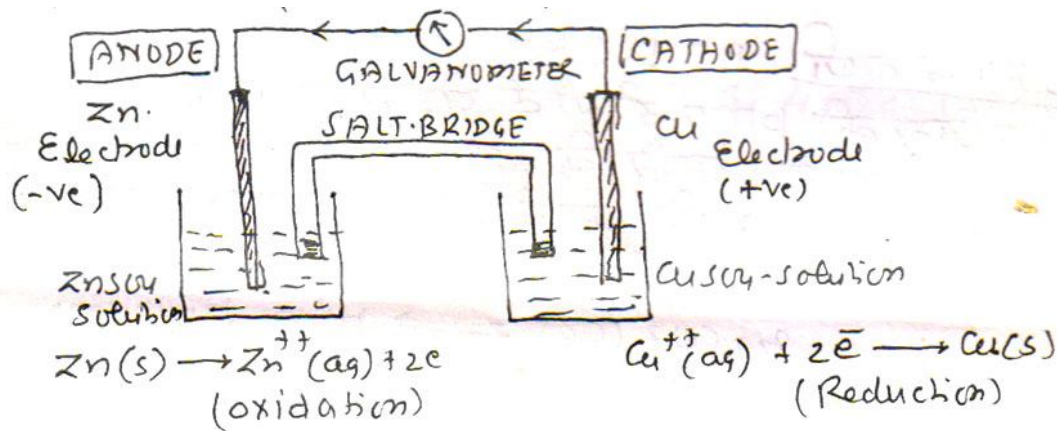 ANODE
CATHODE
GALVANOMETER
Zn.
Electrode
(-ve)
SALT.BRIDGE
Cu
Electrode
(+ve)
ZnSO4
solution
CuSO4-solution
Zn(s) → Zn++(aq) + 2e
(oxidation)
Cu++(aq) + 2e̅ → Cu(s)
(Reduction)